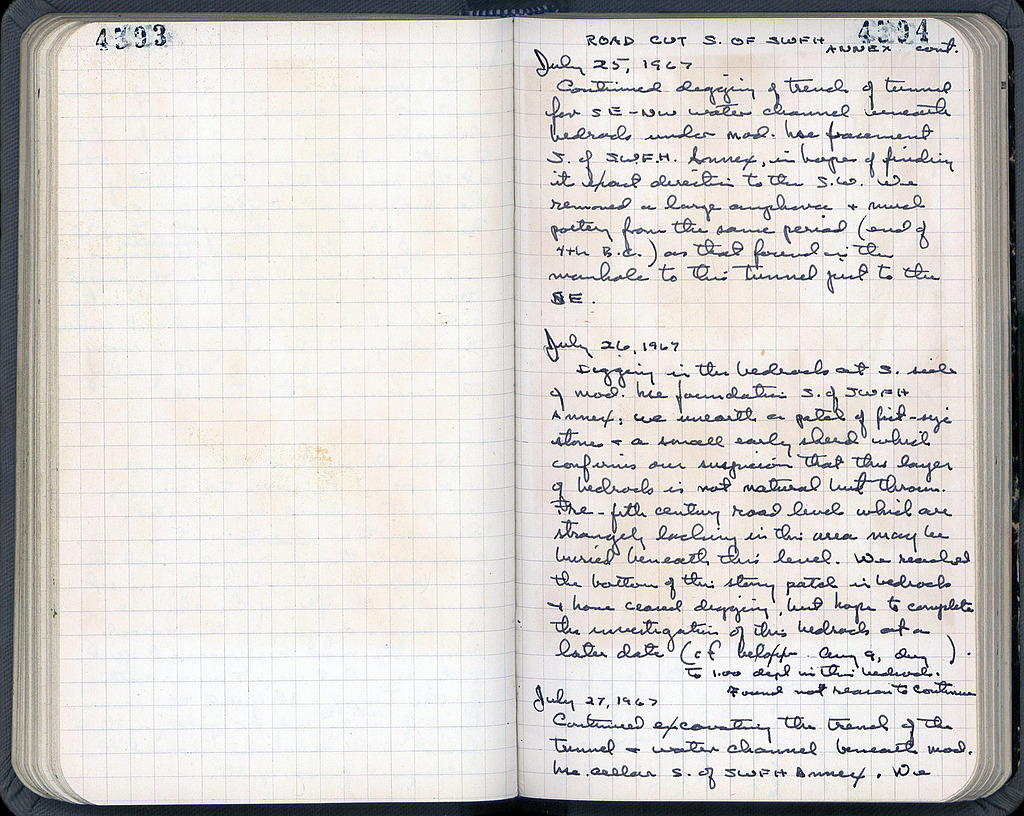 4393
4394
ROAD CUT S. OF SWFH ANNEX cont.
July 25, 1967
Continued digging of trench of tunnel
for SE-NW water channel beneath
bedrock under mod. hse basement
S. of SWFH. Annex, in hopes of finding
it exact direction to the S.W. We
removed a large amphora + much
pottery from the same period (end of
4th B.C.) as that found in the
manhole to this tunnel just to the
SE.
July 26, 1967
Digging in the bedrock at S. side
of mod. hse foundation S. of SWFH
Annex, we unearth a patch of fist-size
stones + a small early sherd which
confirms our suspicion that this layer
of bedrock is not natural but thrown.
Pre-fifth century road levels which are
strangely lacking in this area may be
buried beneath this level. We reached
the bottom of this stony patch in bedrock
+ have ceased digging, but hope to complete
the investigation of this bedrock at a
later date (cf below Aug 9, dug ).
to 1.00 dept in this bedrock.
Found not reason to continue
July 27, 1967
Continued excavating the trench of the
tunnel + water channel beneath mod.
hse cellar S. of SWFH Annex. We